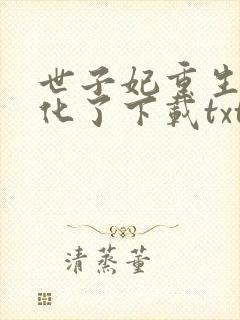 世子妃重生
化了下载txt
清蒸董